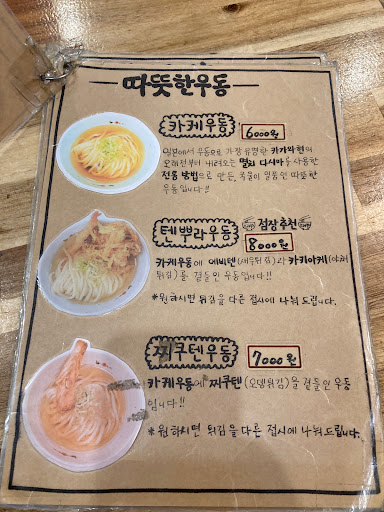 따뜻한우동
카케우동 6000원
일본에서 우동으로 가장 유명한 카가와현의
오래전부터 내려오는 멸치 다시마를 사용한
전통 방법으로 만든, 국물이 일품인 따뜻한
우동입니다!!
텐뿌라우동 점장추천
8000원
카케우동에 에비텐(새우튀김)과 카키아게(야채
튀김)를 곁들인 우동입니다!!
*원하시면 튀김을 다른 접시에 나눠 드립니다.
찌쿠텐우동 7000원
카케우동에 찌쿠텐(오뎅튀김)을 곁들인 우동
입니다!!
*원하시면 튀김을 다른 접시에 나눠드립니다.